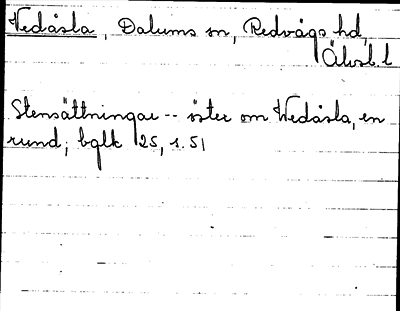 Vedåsla, Dalums sn, Redvägs hd,
Älvsb. l
Stensättningar -- öster om Vedåsla, en
rund; bglk 25, s. 51